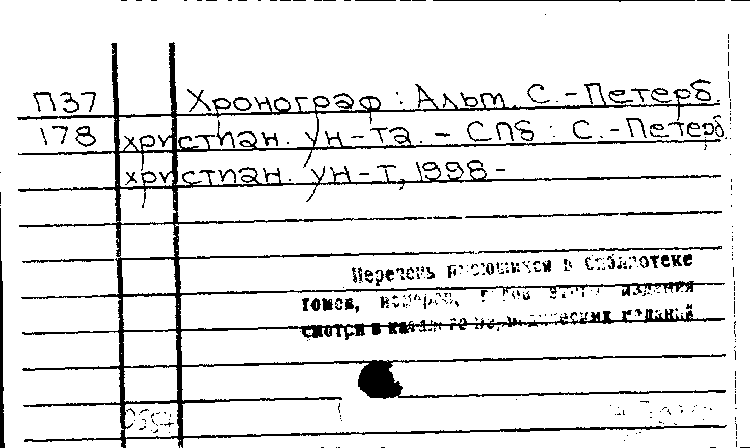 П37 Хронограф : Альм. С.-Петерб.
178 христиан. ун-та. - СПб : С.-Петерб
христиан. ун-т, 1998 -
Перечень имеющихся в библиотеке
томов, номеров, годов этого издания
смотри в каталоге периодических изданий